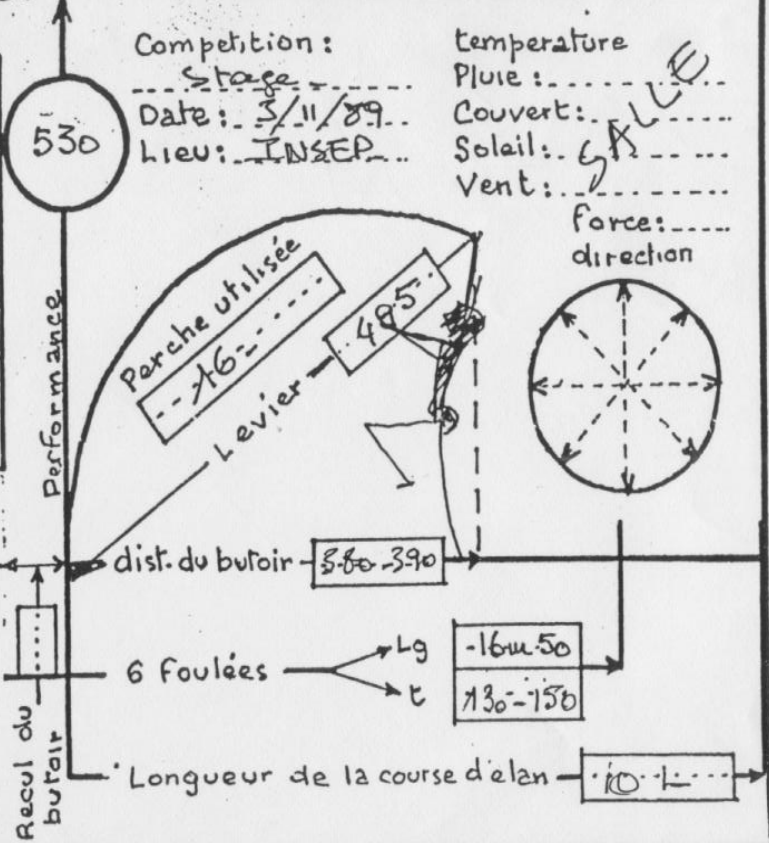 Compétition:
Stage
Date: 3/11/89
Lieu: INSEP
temperature
Pluie:
Couvert:
Soleil:
Vent:
SALLE
Force:
direction
530
Performance
Perche utilisée
16-
Levier
485
dist. du butoir 380-390
6 Foulées
Lg -16m.50
t 130-150
Recul du
butoir
Longueur de la course d'élan 10 L